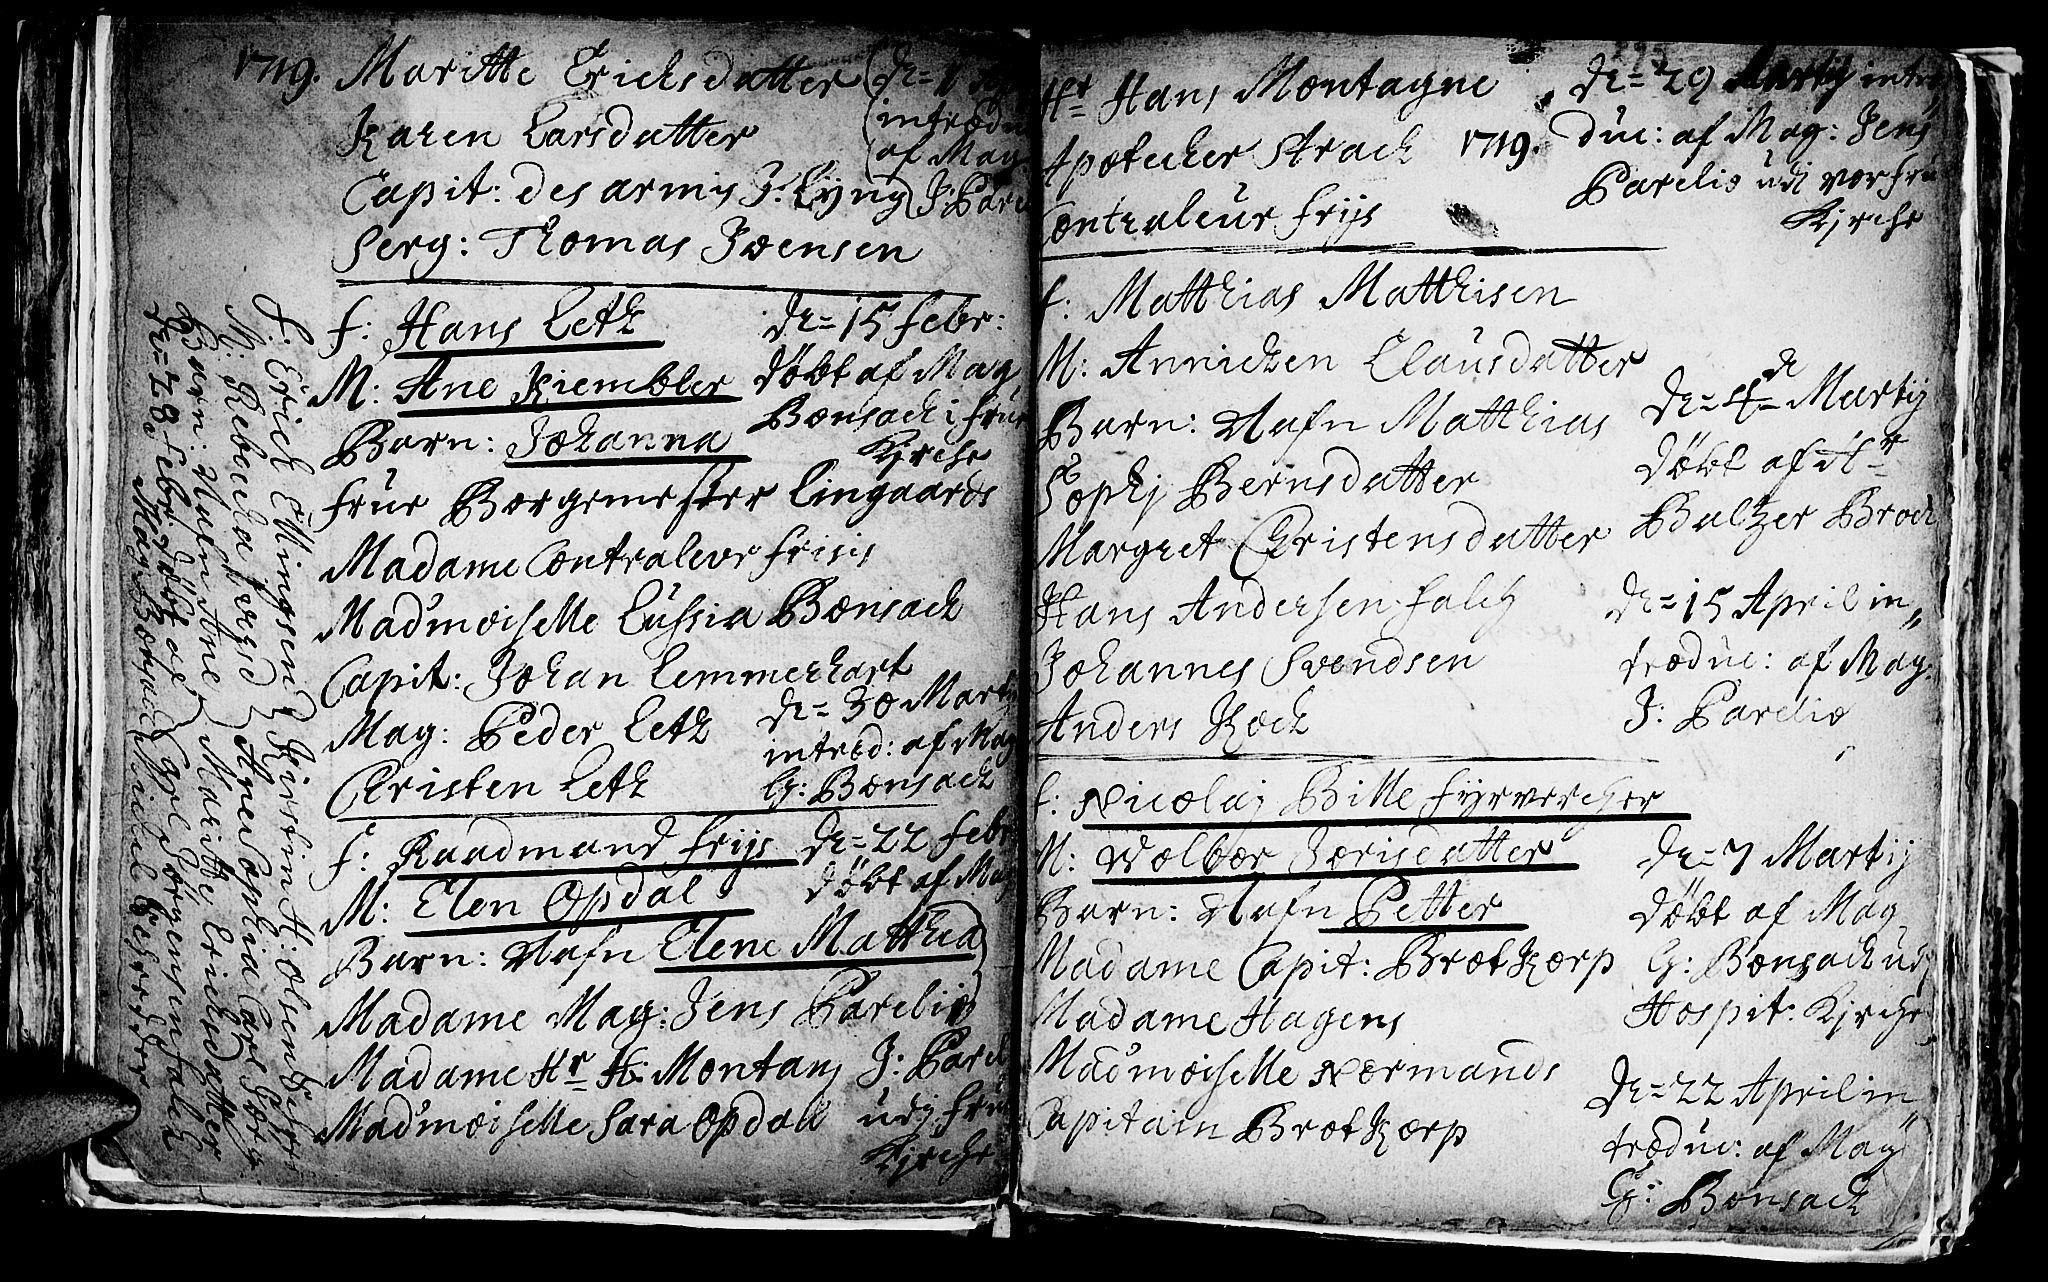 1719. Maritte Erichsdatter
Karen Larsdatter
Capit: des armis J: Lyng
Serg: Thomas Joensen
introdu
af Mag
J: Pare
F: Hans Leth
M: Ane Kiembler
Barn: Johanna
Frue Borgemester Lingaards
Madame Contraleur Frisis
Madmoiselle Lussia Bonsach
Capit: Johan Lemmerhart
Mag: Peder Leth
Christen Leth
De= 15 Febr:
døbt af Mag
Bonsach i Frue
Kirche
De= 30 Marti
introd: af Mag
G: Bonsach
F: Raadmand Frijs
M: Elen Opdal
Barn: Nafn Elene Matthia
Madame Mag: Jens Parelio
Madame Hr H: Montagn
Madmoiselle Sara Opdall
De= 22 Febr
døbt af Mag
J: Parel
udj Frue
Kirche
F: Erich Ellingsen
M: Rebecka Iversd
Barn: Nafn Ane
De= 28 Febr: døbt af
Mag Bonsach
Kirstin H: Olsens
Ane Sophia Carl
Maritte Erichsdatter
Jørgensen Falch
Michel
Hr Hans Montagne
Apotecher Strach
Contraleur Frijs
1719.
De= 29 Martij intro
duc: af Mag: Jens
Parelio udj vor Frue
Kirche
F: Matthias Matthisen
M: Annichen Clausdatter
Barn: Nafn Matthias
Sophj Bernsdatter
Margret Christensdatter
Hans Andersen Falch
Johannes Svendsen
Anders Koch
De= 4de Martij
døbt af Hr
Baltzer Broch
De= 15 April in
troduc: af Mag.
J: Parelio
F: Nicolaj Bille Fyrvercher
M: Volbor Jorisdatter
Barn: Nafn Petter
Madame Capit: Brotkorp
Madame Hagens
Madmoiselle Normands
Capitain Brotkorp
De= 7 Martij
døbt af Mag
G: Bonsach udj
Hospit: Kirche
De= 22 April in
troduc: af Mag
G: Bonsach